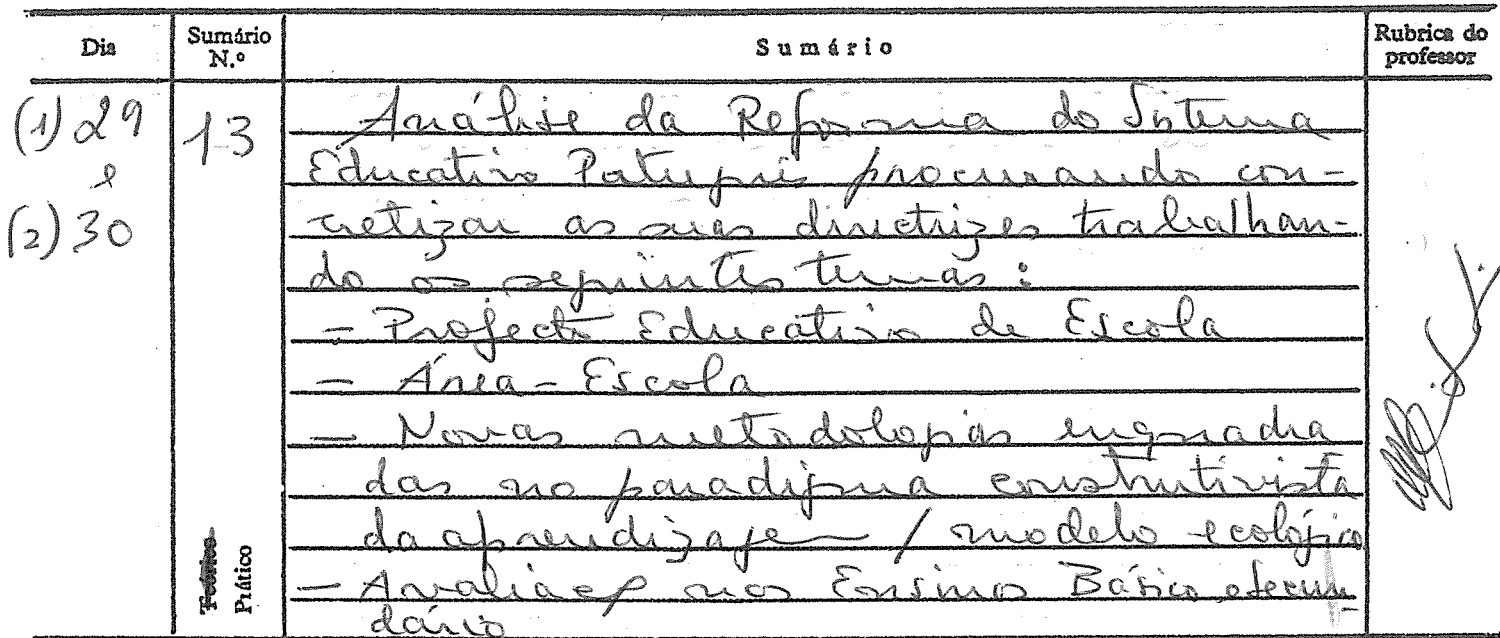 Dia Sumário N.º Sumário Rubrica do professor
(1) 29 13 Análise da Reforma do Sistema
e Educativo Português procurando con-
(2) 30 cretizar as suas directrizes trabalhan-
do os seguintes temas:
- Projecto Educativo de Escola
- Área-Escola
- Novas metodologias enquadra
das no paradigma construtivista
da aprendizagem / modelo ecológico
Teórico Prático - Avaliação nos Ensinos Básico e Secun-
dário